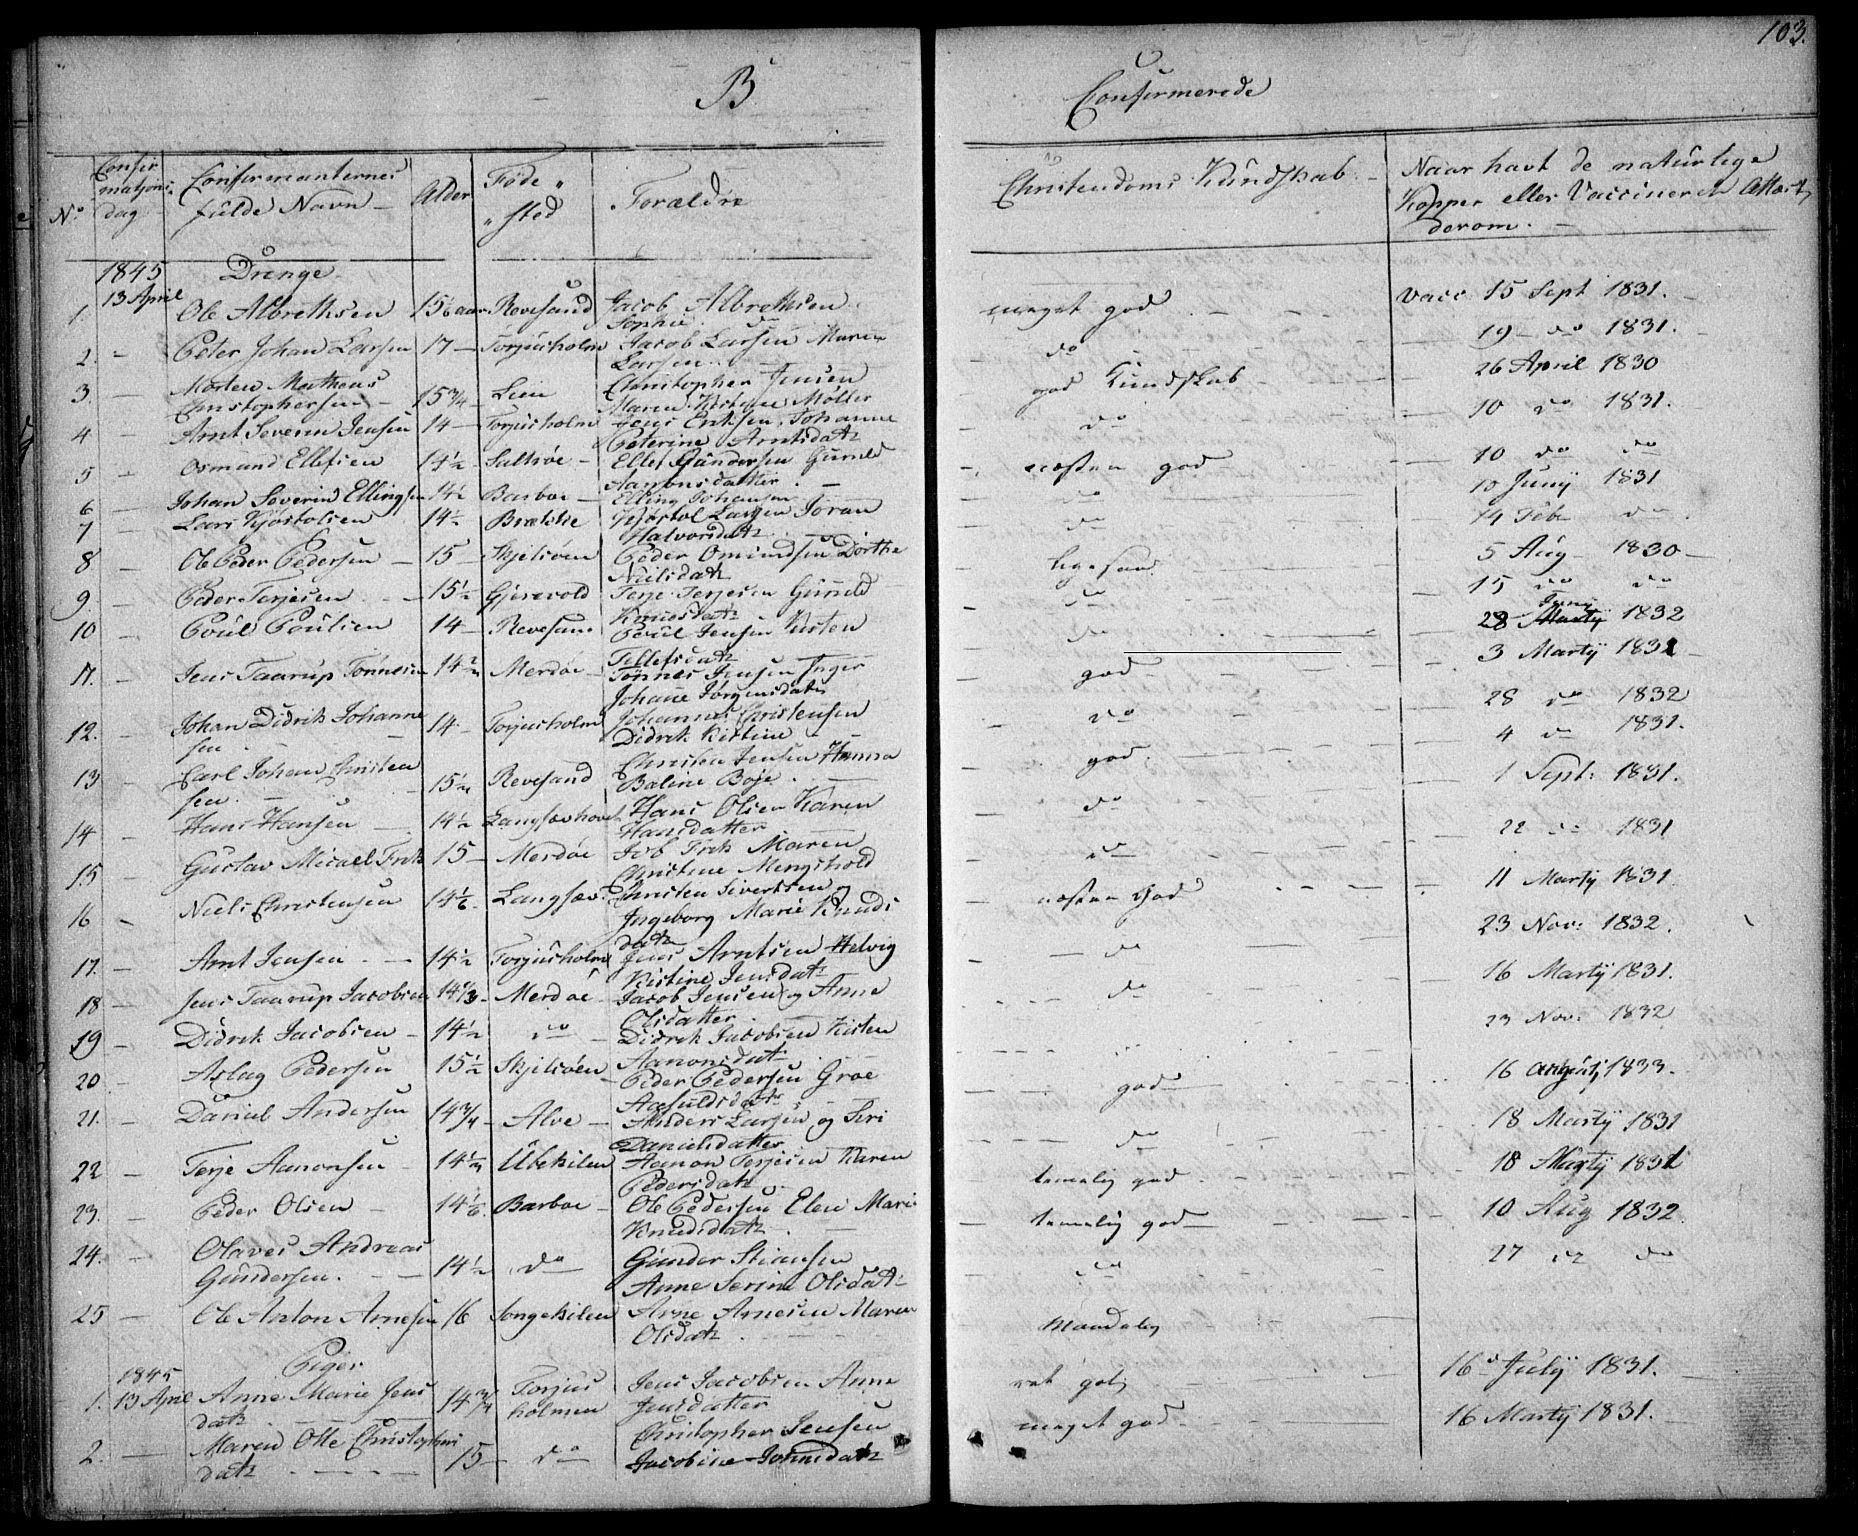 103.
B
Confirmerede
No
Confirmationsdag
Confirmanternes fulde Navn
Alder
Føde sted
Forældre
Christendoms Kundskab
Naar havt de naturlige Kopper eller Vaccineret Attest derom.
1845
Drenge
1. 13 April Ole Albrethsen 15 1/6 aar Revesand Jacob Albrethsen Sophie do meget god Vacc. 15 Sept 1831.
2. Peter Johan Larsen 17 Torjusholm Jacob Larsen Maren Larsen do 19 do 1831.
3 Morten Matheus Christophersen 15 3/4 Lien Christopher Jensen Maren Kistine Møller god Kundskab 26 April 1830
4 Arnt Severin Jensen 14 Torjusholm Jens Eriksen Johanne Peterine Arntsdatr do 10 do 1831.
5 Osmund Ellefsen 14 1/2 Saltrøe Ellef Gundersen Gunild Aanonsdatter næsten god 10 do do
6 Johan Severin Ellingsen 14 1/2 Barboe Elling Johansen do 10 Junij 1831
7 Lars Kjøstolsen 14 1/2 Brække Kjøstol Larsen Joran Halvorsdatr do 14 Feb do
8 Ole Peder Pedersen 15 Skjelsøen Peder Omundsen Dorthe Nielsdatr ligesaa 5 Aug 1830
9. Peder Terjesen 15 1/2 Gjerevold Terje Terjesen Gunild Knudsdatr do 15 do do
10 Poul Poulsen 14 Revesand Poul Jensen Kisten Tellefsdatr do 28 Juny 1832
11. Jens Taarup Tønnesen 14 1/2 Merdøe Tønnes Jensen Inger Johane Jørgensdatr god 3 Martij 1831
12. Johan Didrik Johannesen 14 Torjusholm Johannes Christensen Didrik Kistine do 28 do 1832
13 Carl Johan Christensen 15 1/4 Revesand Christen Jensen Hanna Baline Boje god 4 do 1831.
14 Hans Hansen 14 1/2 Langsævhovet Hans Olsen Karen Hansdatter do 1 Sept: 1831.
15 Gustav Micael Friis 15 Merdøe Job Friis Maren Christine Mengshold do 22 do 1831
16 Niels Christensen 14 1/6 Langsæv Christen Sivertsen og Ingeborg Marie Knudsdatr næsten God 11 Martij 1831.
17. Arnt Jensen 14 1/2 Torjusholm Jens Arntsen Helvig Kistine Jensdatr do 23 Nov: 1832.
18 Jens Taarup Jacobsen 14 1/3 Merdøe Jacob Jensen og Anne Olsdatter do 16 Martij 1831.
19 Didrik Jacobsen 14 1/2 do Didrik Jacobsen Kisten Aanonsdatr 23 Nov: 1832
20 Aslag Pedersen 15 1/2 Skjelsøen Peder Pedersen Groe god 16 August 1833.
21. Daniel Andersen 14 3/4 Alve Anders Larsen og Siri Danielsdatter do 18 Martij 1831
22 Terje Aanonsen 14 1/4 Ubekilen Aanon Terjesen Karen Pedersdatr temelig god 18 Martij 1831
23. Peder Olsen 14 1/6 Barboe Ole Pedersen Elen Marie Knudsdatr temelig god 10 Aug 1832
24. Olaves Andreas Gundersen. 14 1/2 do Gunder Stiansen Anne Serine Olsdatr do 27 do do
25 Ole Anton Arnesen 16 Songekilen Arne Arnesen Maren Olsdatr Maadelig
1845
Piger
1. 13 April Anne Marie Jensdatr 14 3/4 Torjusholmen Jens Jacobsen Anne Jensdatter ret god 16 July 1831.
2. Maren Otte Christophersdatr 15 do Christopher Jensen Jacobine Johnsdatr meget god 16 Martij 1831.